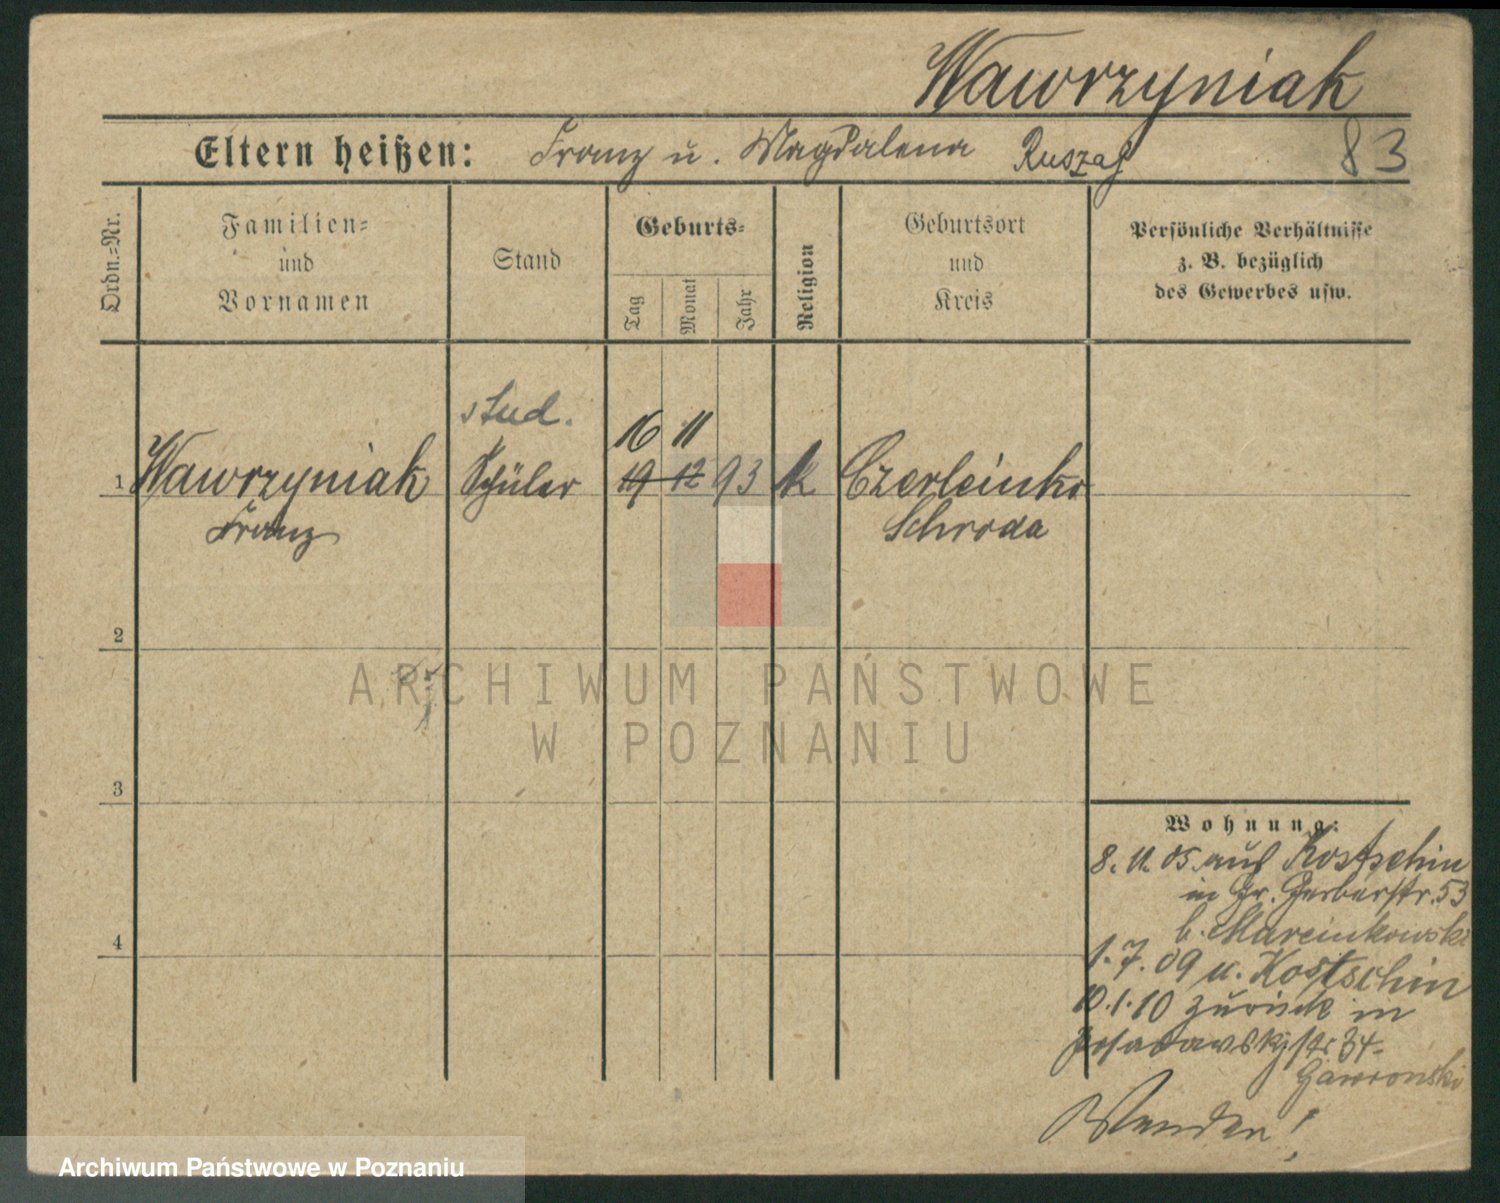 Wawrzyniak
Eltern heißen: Franz u. Magdalena Ruszaj 83
Ordn.-Nr.
Familien-
und
Vornamen
Stand
Geburts-
Tag
Monat
Jahr
Religion
Geburtsort
und
Kreis
Persönliche Verhältnisse
z. B. bezüglich
des Gewerbes usw.
stud.
16 11
1 Wawrzyniak Schüler 19 12 93 k Czerleinko
Franz Schroda
2
3
4
Wohnung:
8. 11. 05. aus Kostschin
in Gr. Gerberstr. 53
b. Marcinkowski
1. 7. 09 n. Kostschin
10. 1. 10 zurück in
Posadowskystr. 34.
Gawronski
Wenden!
ARCHIWUM PAŃSTWOWE
W POZNANIU
Archiwum Państwowe w Poznaniu